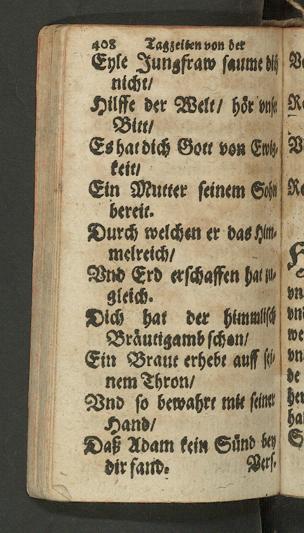 408 Tagzeiten von der
Eyle Jungfraw saume dich
nicht/
Hilffe der Welt/ hör vnse
Bitt/
Es hat dich Gott von Ewig-
keit/
Ein Mutter seinem Sohn
bereit.
Durch welchen er das Him-
melreich/
Vnd Erd erschaffen hat zu-
gleich.
Dich hat der himmlisch
Bräutigamb schon/
Ein Braut erhebt auff sei-
nem Thron/
Vnd so bewahrt mit seiner
Hand/
Daß Adam kein Sünd bey
dir fand. Vers.